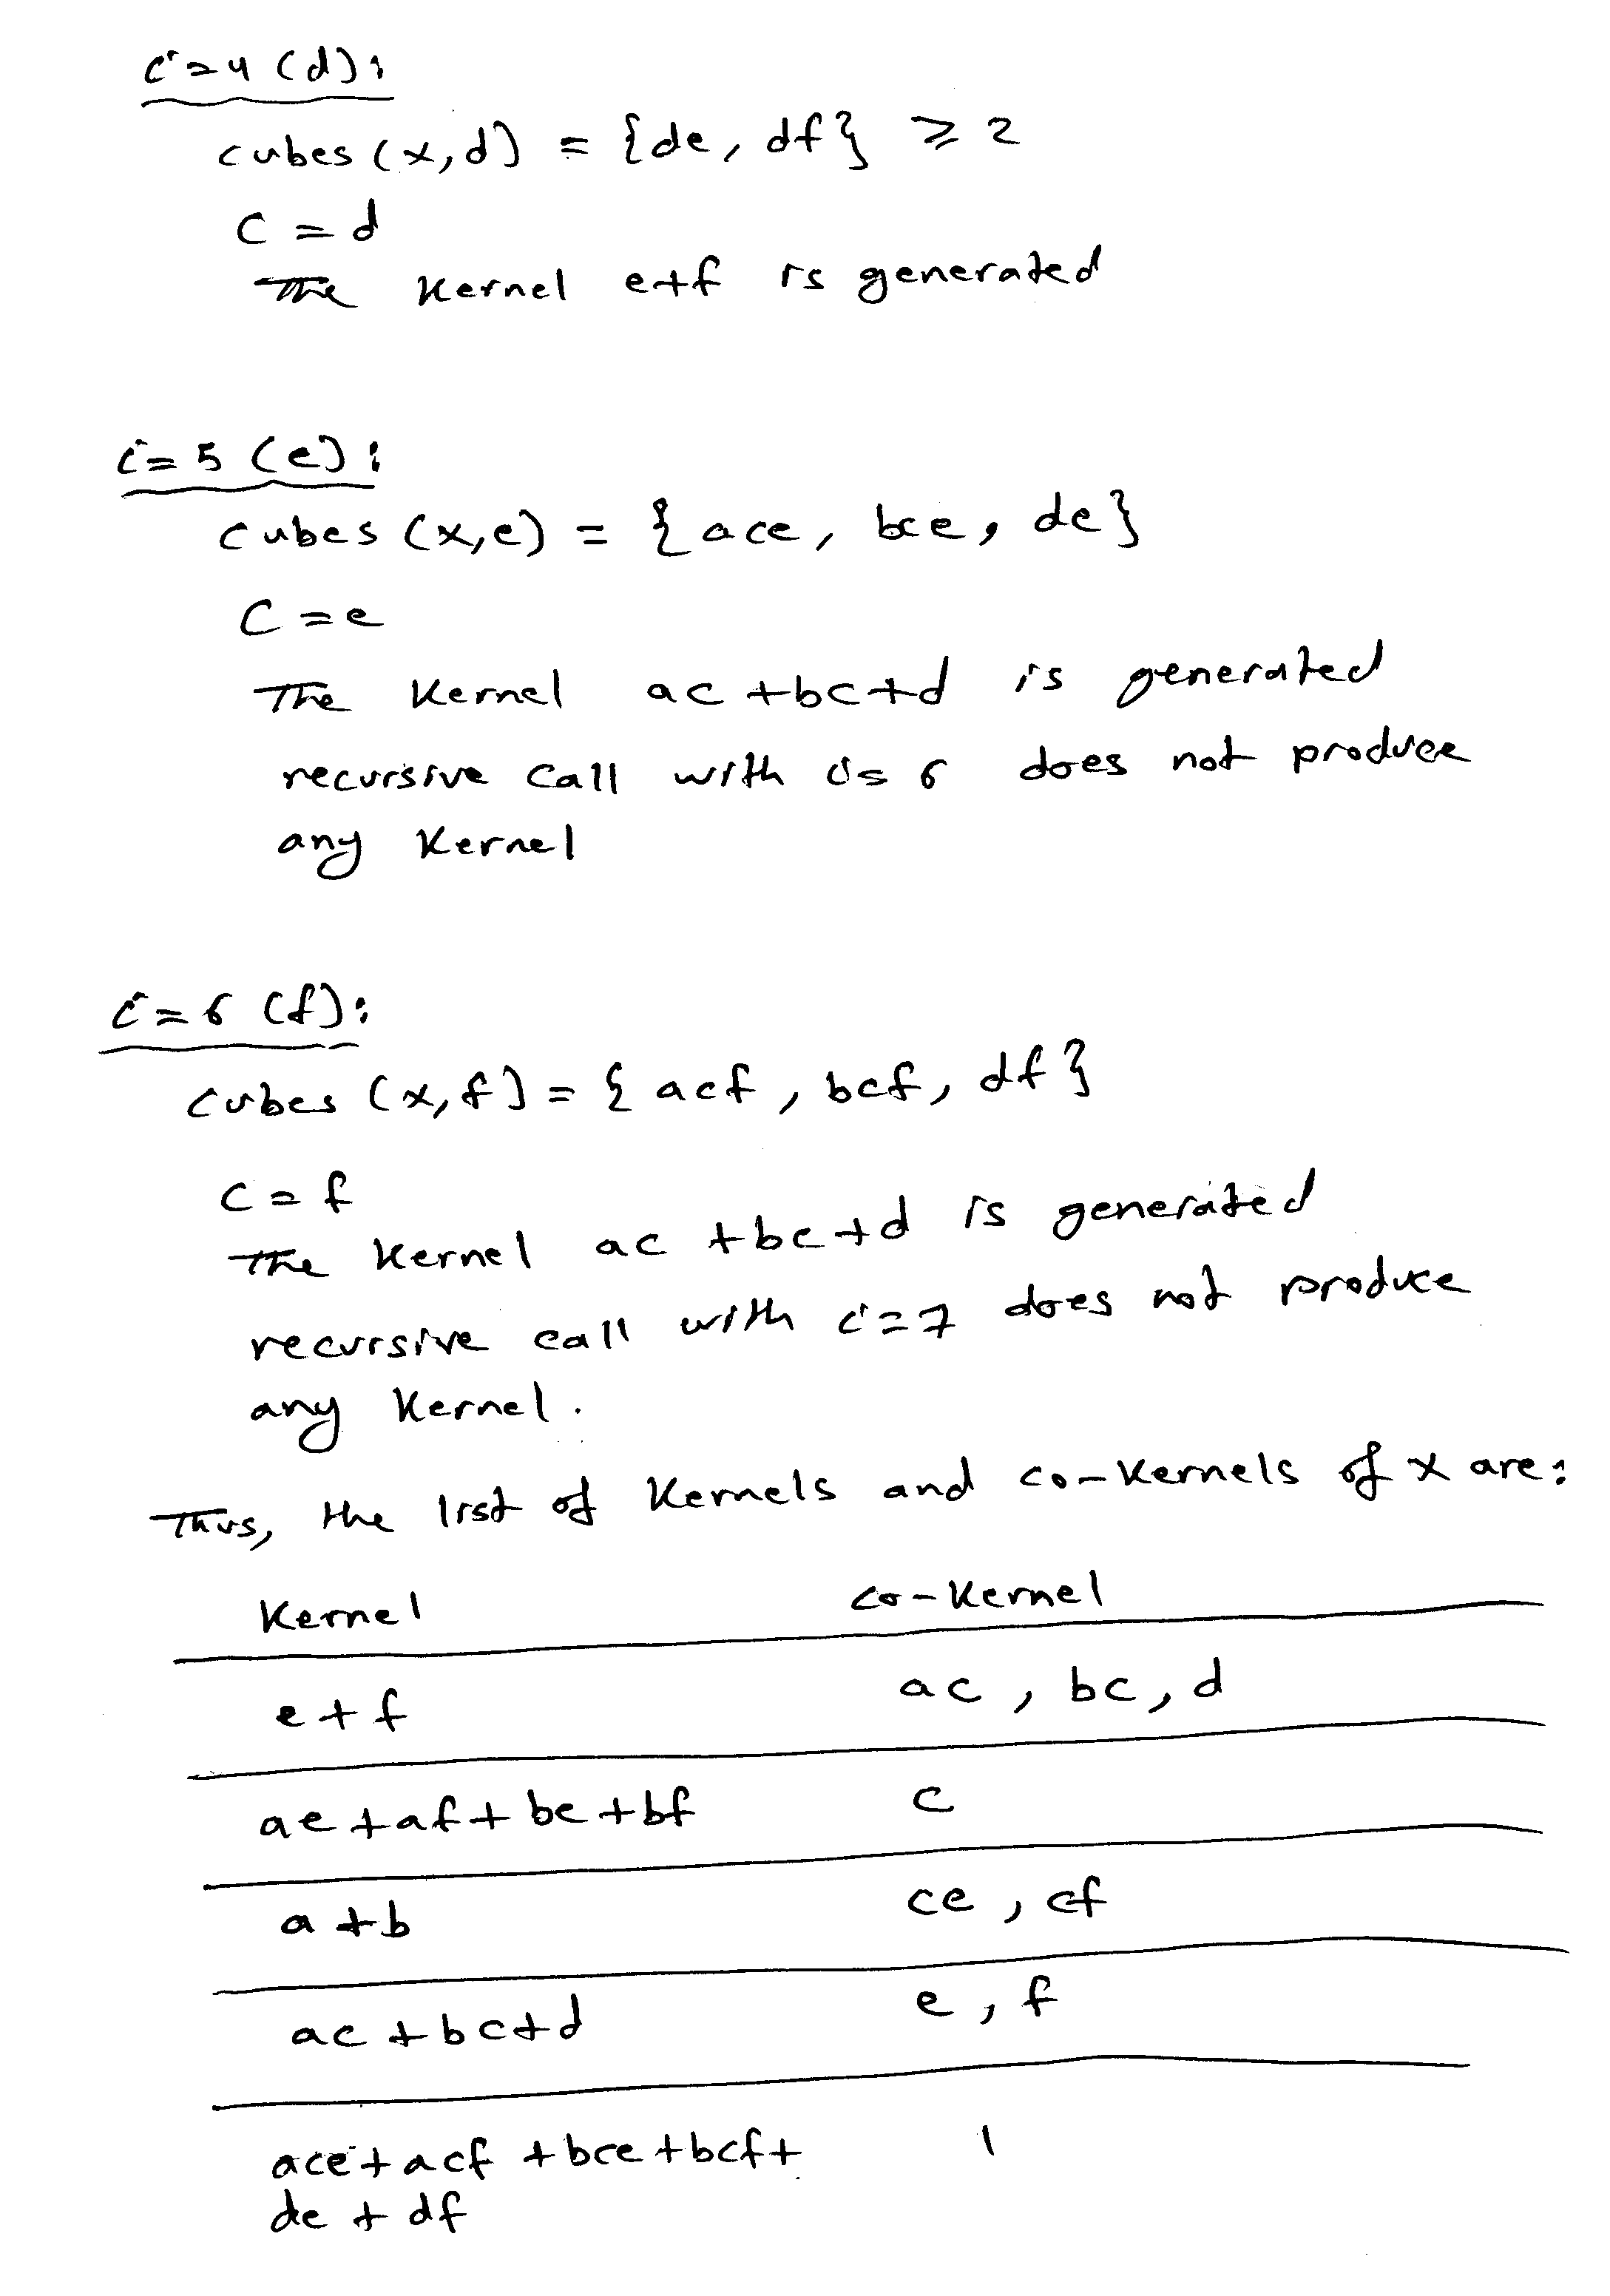 i=4 (d):
cubes (x,d) = {de, df} ≥ 2
C = d
The Kernel e+f is generated
i=5 (e):
cubes (x,e) = {ace, bce, de}
C = e
The Kernel ac +bc+d is generated
recursive call with i=6 does not produce
any Kernel
i=6 (f):
cubes (x,f) = {acf, bcf, df}
C = f
The Kernel ac +bc+d is generated
recursive call with i=7 does not produce
any Kernel.
Thus, the list of Kernels and co-Kernels of x are:
Kernel co-Kernel
e+f ac, bc, d
ae+af+be+bf c
a+b ce, cf
ac+bc+d e, f
ace+acf+bce+bcf+ 1
de + df